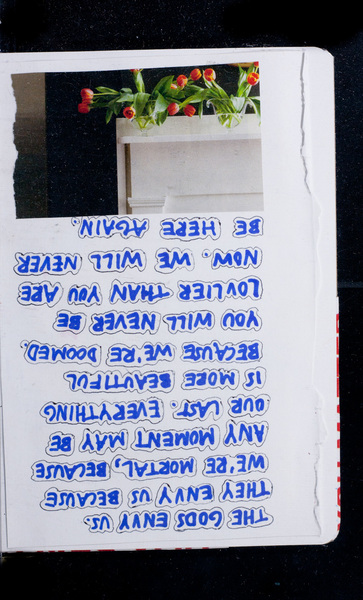 THE GODS ENVY US.
THEY ENVY US BECAUSE
WE'RE MORTAL, BECAUSE
ANY MOMENT MAY BE
OUR LAST. EVERYTHING
IS MORE BEAUTIFUL
BECAUSE WE'RE DOOMED.
YOU WILL NEVER BE
LOVLIER THAN YOU ARE
NOW. WE WILL NEVER
BE HERE AGAIN.